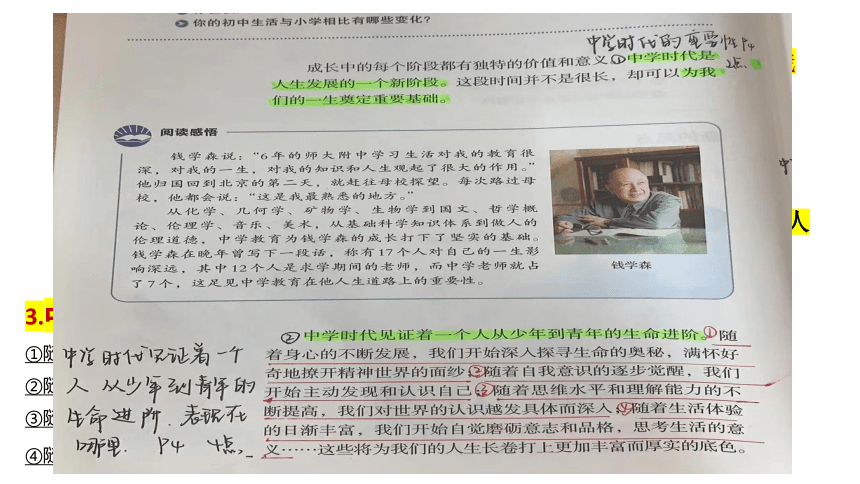 你的初中生活与小学相比有哪些变化?
中学时代的重要性P4
2点.
成长中的每个阶段都有独特的价值和意义①中学时代是
人生发展的一个新阶段。这段时间并不是很长,却可以为我
们的一生奠定重要基础。
阅读感悟
钱学森说:“6年的师大附中学习生活对我的教育很
深,对我的一生,对我的知识和人生观起了很大的作用。”
他归国回到北京的第二天,就赶往母校探望。每次路过母
校,他都会说:“这是我最熟悉的地方。”
从化学、几何学、矿物学、生物学到国文、哲学概
论、伦理学、音乐、美术,从基础科学知识体系到做人的
伦理道德,中学教育为钱学森的成长打下了坚实的基础。
钱学森在晚年曾写下一段话,称有17个人对自己的一生影
响深远,其中12个人是求学期间的老师,而中学老师就占
了7个,这足见中学教育在他人生道路上的重要性。
钱学森
人
3.中
①随
②随
③随
④随
中学时代见证着一个
人从少年到青年的
生命进阶.表现在
哪里. P4 4点,
②中学时代见证着一个人从少年到青年的生命进阶。①随
着身心的不断发展,我们开始深入探寻生命的奥秘,满怀好
奇地撩开精神世界的面纱;②随着自我意识的逐步觉醒,我们
开始主动发现和认识自己;③随着思维水平和理解能力的不
断提高,我们对世界的认识越发具体而深入;④随着生活体验
的日渐丰富,我们开始自觉磨砺意志和品格,思考生活的意
义……这些将为我们的人生长卷打上更加丰富而厚实的底色。